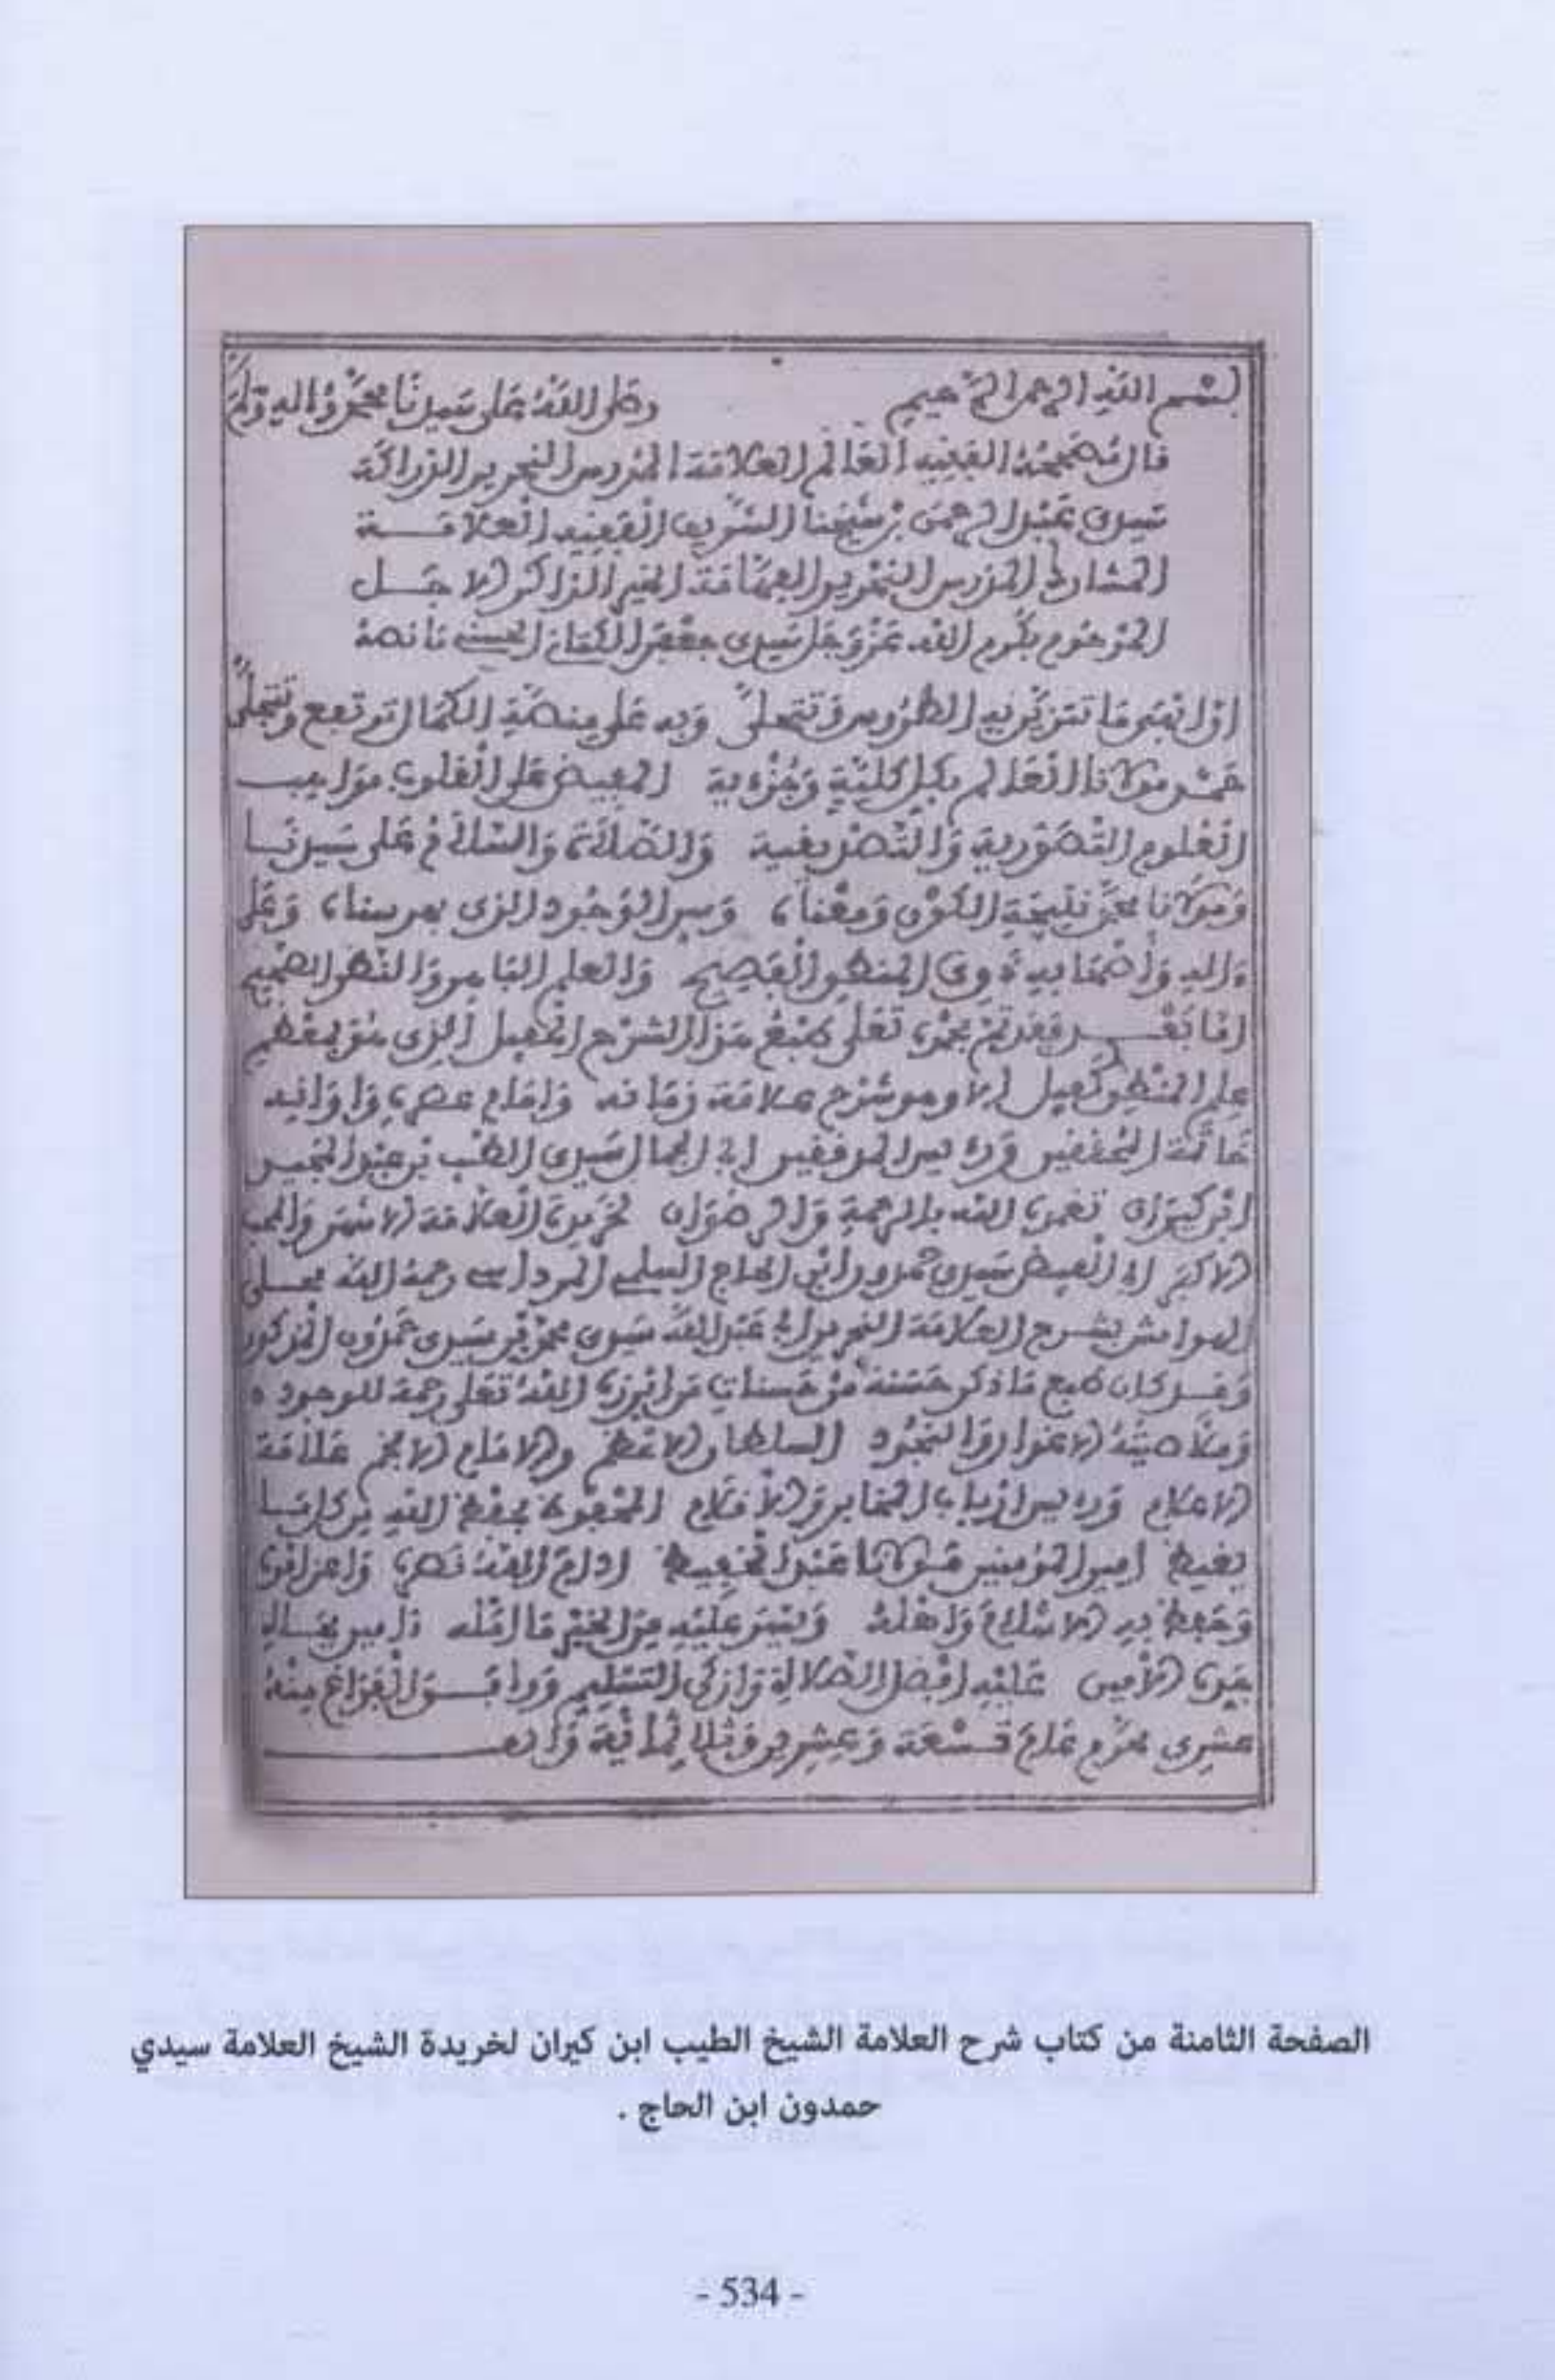 بسم الله الرحمن الرحيم وصلى الله على سيدنا محمد وءاله وسلم
قال مصححه الفقيه العالم العلامة المدرس النحرير الدراكة
سيدي عبد الرحمن بن شيخنا الشريف الفقيه العلامـــة
المشارك المدرس النحرير الفهامة الخير الذاكر الاجـــل
المرحوم بكرم الله عز وجل سيدي جعفر الكتاني الحسني ما نصه
اول انفس ما تتزين به الطروس وتتحلى وبه على منصة الكمال ترتفع وتتجلى
حمد مولانا العالم بكل كلية وجزءية المفيض على القلوب مواهب
العلوم التصورية والتصديقية والصلاة والسلام على سيدنا
ومولانا محمد نتيجة الكون ومعناه وسر الوجود الذي بهر سناه وعلى
ءاله وأصحابه ذوي المنطق الفصيح والعلم الباهر والنظر الصحيح
اما بعـــد فقد تم بحمده تعلى طبع هذا الشرح الجميل الذي هو بمعظم
علم المنطق كفيل الا وهو شرح علامة زمانه وامام عصره واوانه
خاتمة المحققين ورءيس المدققين ابي الجمال سيدي الطيب بن عبد المجيد
ابن كيران تغمده الله بالرحمة والرضوان لخريدة العلامة الاشهر والمحب
الاكبر ابي الفيض سيدي حمدون ابن الحاج السلمي المرداسي رحمه الله محلى
الهوامش بشرح العلامة النحرير ابي عبد الله سيدي محمد بن سيدي حمدون المذكور
وقد كان طبع ما ذكر حسنة من حسنات من ابرزه الله تعلى رحمة للوجود
وملأ صيته الاغوار والنجود السلطان الاعظم والامام الافخم علامة
الاعلام ورءيس ارباب المحابر والأقلام المحفوف بحفظ الله من كل ما
يغيظ امير المومنين مولانا عبد الحفيظ ادام الله نصره واعز امره
وحفظ به الاسلام واهله ويسر عليه من الخير ما امله ءامين بجاه
جده الأمين عليه افضل الصلاة وازكى التسليم ووافـــق الفراغ منه
عشري محرم عام تسعة وعشرين وثلاثمائة والف
الصفحة الثامنة من كتاب شرح العلامة الشيخ الطيب ابن كيران لخريدة الشيخ العلامة سيدي
حمدون ابن الحاج .
- 534 -